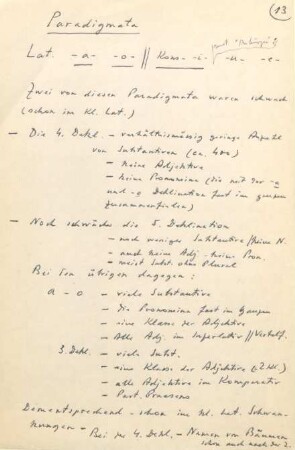 13
Paradigmata
Lat. -a- -o- // Kons -i- -u- -e-
Zwei von diesen Paradigmata waren schwach
(schon im Kl. Lat.)
- Die 4. Dekl. - verhältnismässig geringe Anzahl
von Substantiven (ca. 400)
- keine Adjektive
- keine Pronomina (die mit der -a
und -o Deklination fast im ganzen
zusammenfielen)
- Noch schwächer die 5. Deklination
- noch weniger Substantive // keine N.
- auch keine Adj. - keine Pron.
- meist Subst. ohne Plural
Bei den übrigen dagegen:
a - o - viele Substantive
- die Pronomina fast im Ganzen
- eine Klasse der Adjektive
- Alle Adj. im Superlativ //
3. Dekl. - viele Subst.
- eine Klasse der Adjektive (2 Kl.)
- alle Adjektive im Komparativ
- Part. Praesens
Dementsprechend - schon im kl. Lat. Schwan-
kungen - Bei der 4. Dekl. - Namen von Bäumen
schon auch nach der 2.